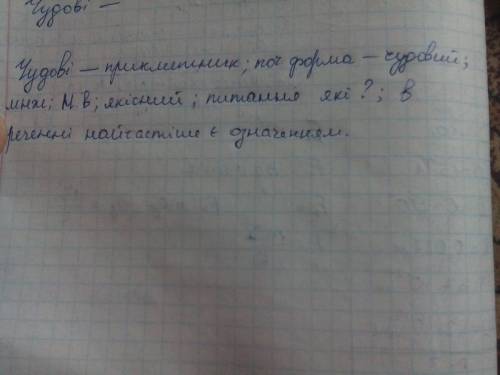 Чудові —
Чудові — прикметник; поч форма — чудовий;
мнж; Н.в; якісний; питання які?; в
реченні найчастіше є означенням.